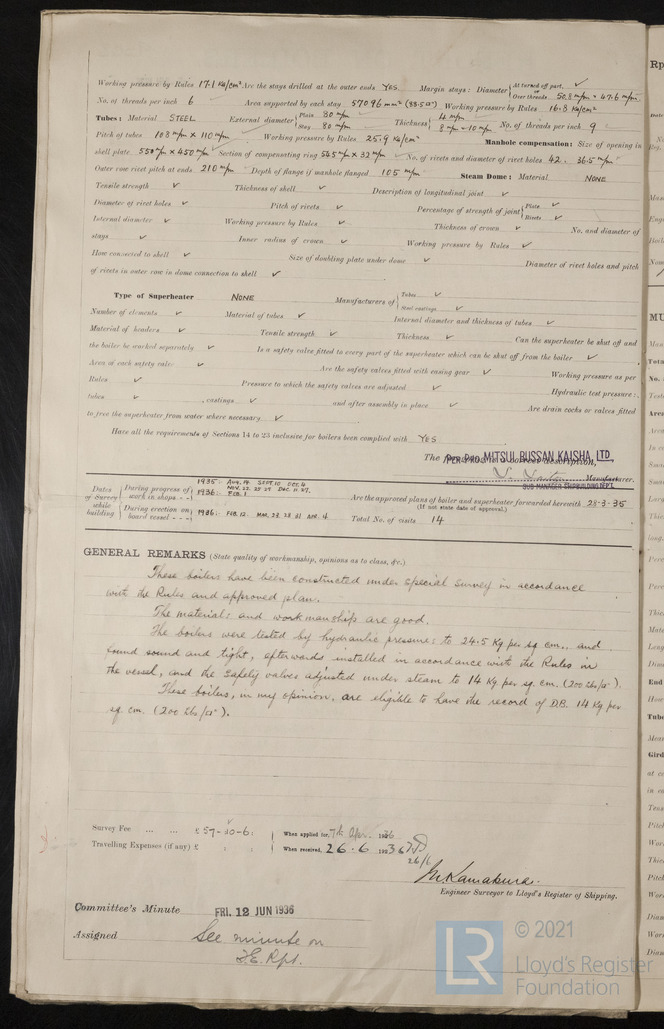 Working pressure by Rules 17.1 Kg/cm² Are the stays drilled at the outer ends YES Margin stays: Diameter { At turned off part, ✓ or Over threads 50.8 m/m = 47.6 m/m
No. of threads per inch 6 Area supported by each stay 57096 mm² (88.5□") Working pressure by Rules 16.8 Kg/cm²
Tubes: Material STEEL External diameter { Plain 80 m/m Stay 80 m/m Thickness { 4 m/m 8 m/m ~ 10 m/m No. of threads per inch 9
Pitch of tubes 108 m/m x 110 m/m Working pressure by Rules 25.9 Kg/cm² Manhole compensation: Size of opening in
shell plate 550 m/m x 450 m/m Section of compensating ring 545 m/m x 32 m/m No. of rivets and diameter of rivet holes 42. 36.5 m/m
Outer row rivet pitch at ends 210 m/m Depth of flange if manhole flanged 105 m/m Steam Dome: Material NONE
Tensile strength ✓ Thickness of shell ✓ Description of longitudinal joint ✓
Diameter of rivet holes ✓ Pitch of rivets ✓ Percentage of strength of joint { Plate ✓ Rivets ✓
Internal diameter ✓ Working pressure by Rules ✓ Thickness of crown ✓ No. and diameter of
stays ✓ Inner radius of crown ✓ Working pressure by Rules ✓
How connected to shell ✓ Size of doubling plate under dome ✓ Diameter of rivet holes and pitch
of rivets in outer row in dome connection to shell ✓
Type of Superheater NONE Manufacturers of { Tubes ✓ Steel castings ✓
Number of elements ✓ Material of tubes ✓ Internal diameter and thickness of tubes ✓
Material of headers ✓ Tensile strength ✓ Thickness ✓ Can the superheater be shut off and
the boiler be worked separately ✓ Is a safety valve fitted to every part of the superheater which can be shut off from the boiler ✓
Area of each safety valve ✓ Are the safety valves fitted with easing gear ✓ Working pressure as per
Rules ✓ Pressure to which the safety valves are adjusted ✓ Hydraulic test pressure:
tubes ✓ , castings ✓ and after assembly in place ✓ Are drain cocks or valves fitted
to free the superheater from water where necessary ✓
Have all the requirements of Sections 14 to 23 inclusive for boilers been complied with YES
The foregoing is a correct description,
PER PRO. MITSUI BUSSAN KAISHA, LTD.
Manufacturer.
SUB MANAGER SHIPBUILDING DEPT.
Dates of Survey while building { During progress of work in shops - - { 1935: AUG. 14. SEPT. 10 DEC. 4 NOV. 22. 25 29 DEC. 11. 27. 1936: FEB. 1
During erection on board vessel - - - { 1936: FEB. 12. MAR. 23. 28 31 APR. 4.
Are the approved plans of boiler and superheater forwarded herewith 28-3-35
(If not state date of approval.)
Total No. of visits 14
GENERAL REMARKS (State quality of workmanship, opinions as to class, &c.)
These boilers have been constructed under special survey in accordance
with the Rules and approved plan.
The materials and workmanship are good.
The boilers were tested by hydraulic pressure: to 24.5 Kg per sq cm., and
found sound and tight, afterwards installed in accordance with the Rules in
the vessel, and the safety valves adjusted under steam to 14 Kg. per sq. cm. (200 lbs/□").
These boilers, in my opinion, are eligible to have the record of D.B. 14 Kg per
sq. cm. (200 lbs/□").
Survey Fee ... ... £57-30-6: When applied for, 7th Apr. 1936
Travelling Expenses (if any) £ : : When received, 26.6 1936
26/6
M. Kamakura.
Engineer Surveyor to Lloyd's Register of Shipping.
Committee's Minute FRI. 12 JUN 1936
Assigned See minute on
F.E. Rpt.
LR © 2021
Lloyd's Register
Foundation